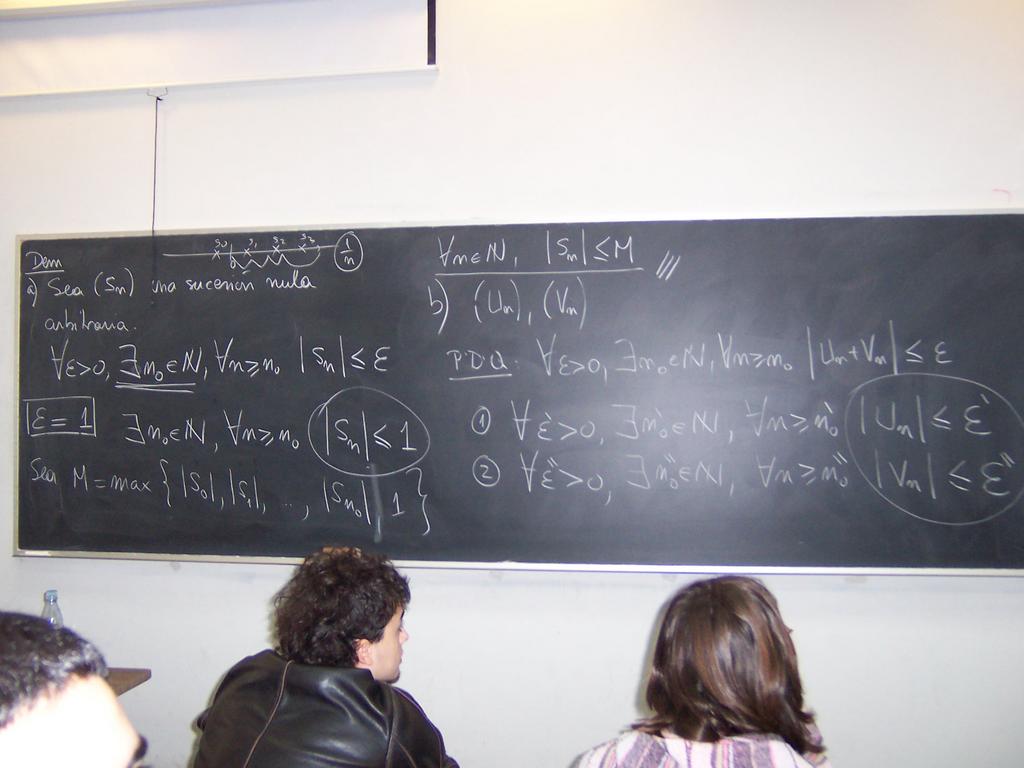 Dem
S0 S1 S2 S3 1/n
a) Sea (Sn) una sucesión nula
arbitraria.
∀ε>0, ∃n₀∈ℕ, ∀n≥n₀ |Sn| ≤ ε
ε = 1 ∃n₀∈ℕ, ∀n≥n₀ |Sn| ≤ 1
Sea M = max { |S₀|, |S₁|, ..., |Sn₀| 1 }
∀n∈ℕ, |Sn| ≤ M
b) (Un), (Vn)
P.D.Q. ∀ε>0, ∃n₀∈ℕ, ∀n≥n₀ |Un+Vn| ≤ ε
① ∀ε'>0, ∃n₀'∈ℕ, ∀n≥n₀' |Un| ≤ ε'
② ∀ε''>0, ∃n₀''∈ℕ, ∀n≥n₀'' |Vn| ≤ ε''